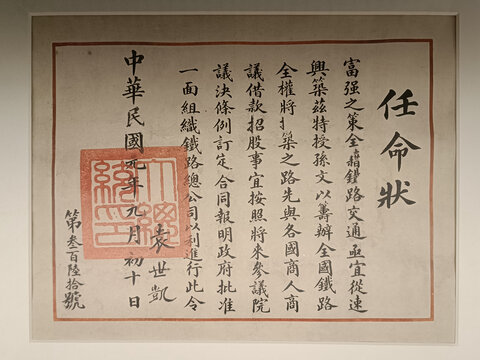 任命狀
富强之策全藉鐵路交通亟宜從速
興築茲特授孫文以籌辦全國鐵路
全權將築之路先與各國商人商
議借款招股事宜按照將來參議院
議決條例訂定合同報明政府批准
一面組織鐵路總公司以利進行此令
袁世凱
大總統印
中華民國元年九月初十日
第叁百陸拾號